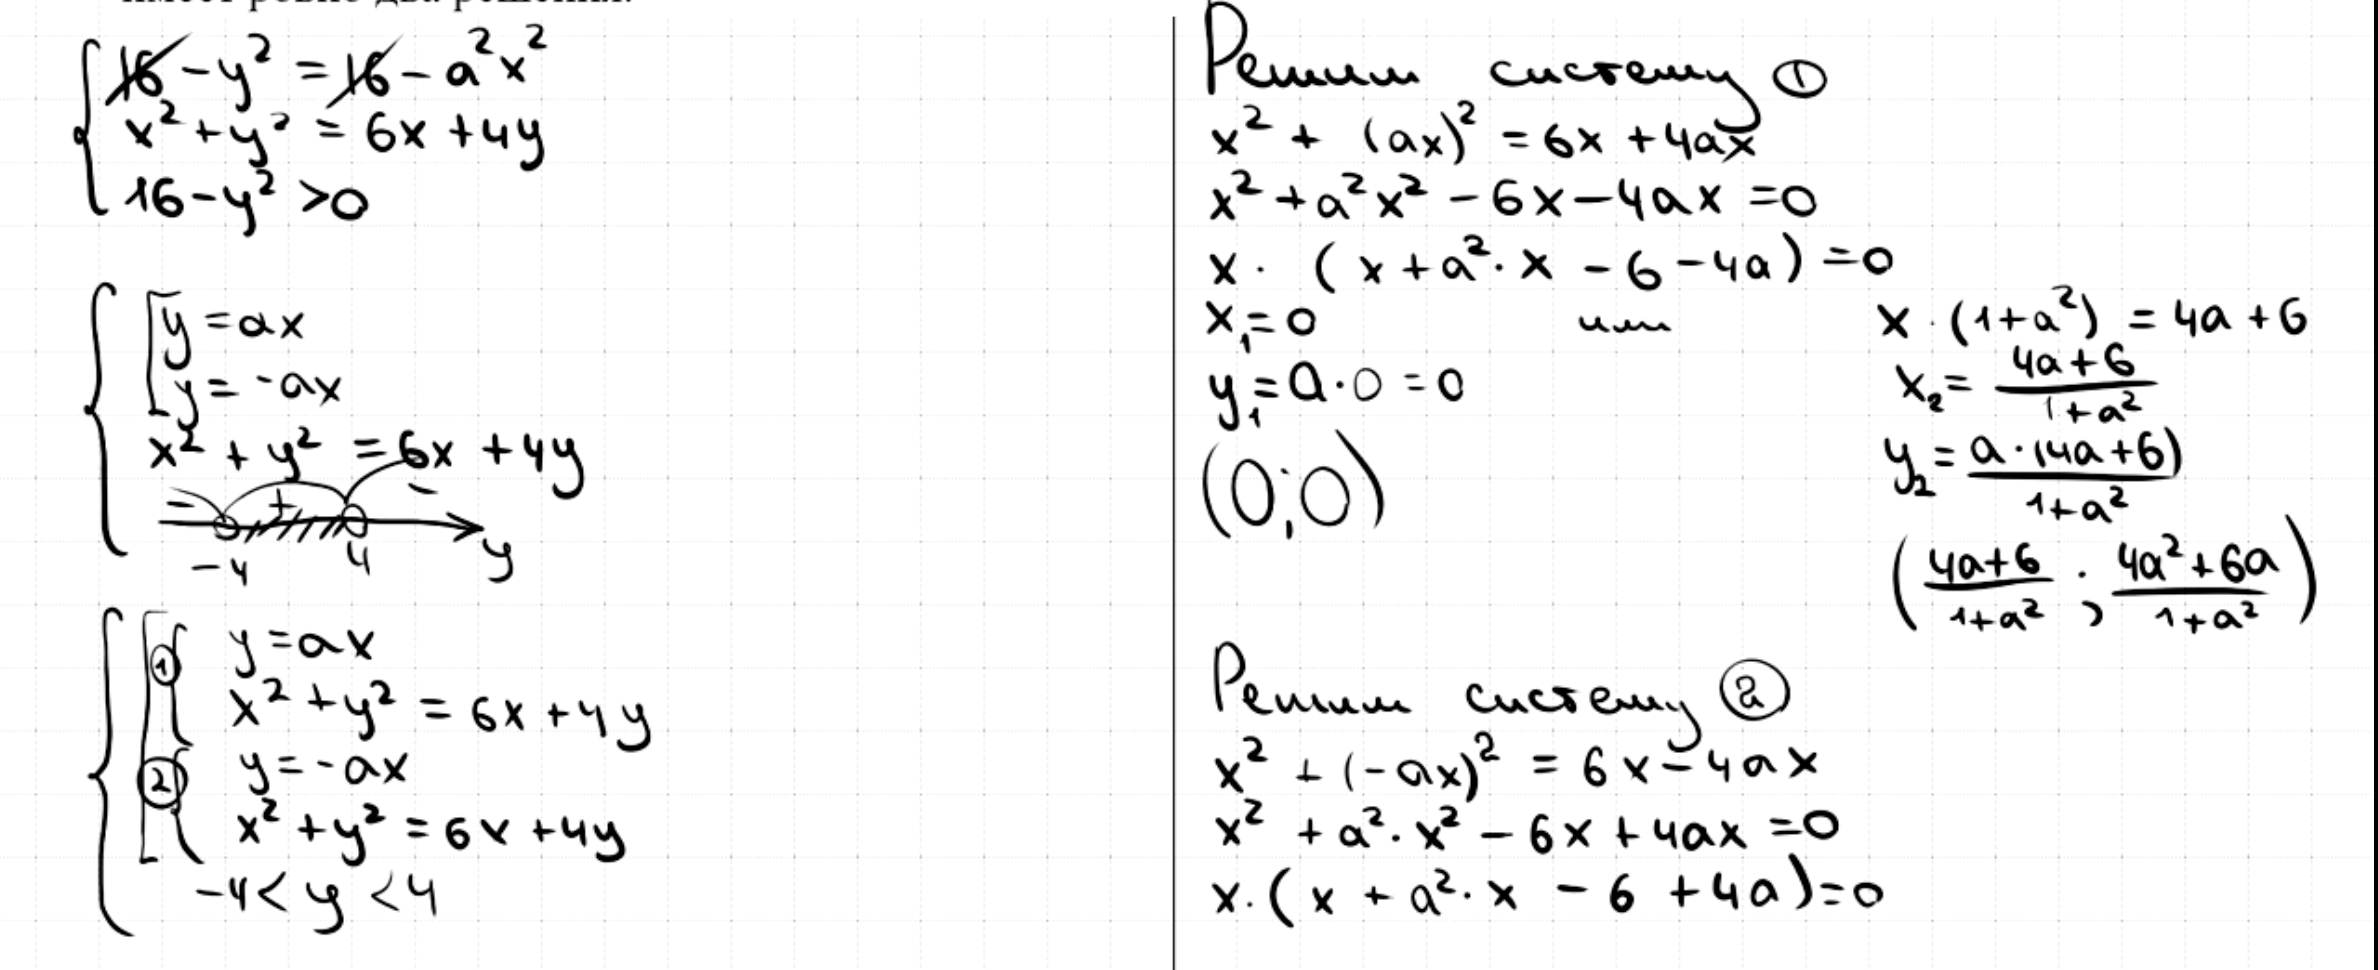 имеет ровно два решения.
16 - y² = 16 - a²x²
x² + y² = 6x + 4y
16 - y² > 0
y = ax
y = -ax
x² + y² = 6x + 4y
- + -
-4 4 y
① y = ax
x² + y² = 6x + 4y
② y = -ax
x² + y² = 6x + 4y
-4 < y < 4
Решим систему ①
x² + (ax)² = 6x + 4ax
x² + a²x² - 6x - 4ax = 0
x · (x + a² · x - 6 - 4a) = 0
x₁ = 0 или x · (1 + a²) = 4a + 6
y₁ = a · 0 = 0
(0; 0)
x₂ = (4a + 6)/(1 + a²)
y₂ = a · (4a + 6)/(1 + a²)
((4a + 6)/(1 + a²); (4a² + 6a)/(1 + a²))
Решим систему ②
x² + (-ax)² = 6x - 4ax
x² + a² · x² - 6x + 4ax = 0
x · (x + a² · x - 6 + 4a) = 0